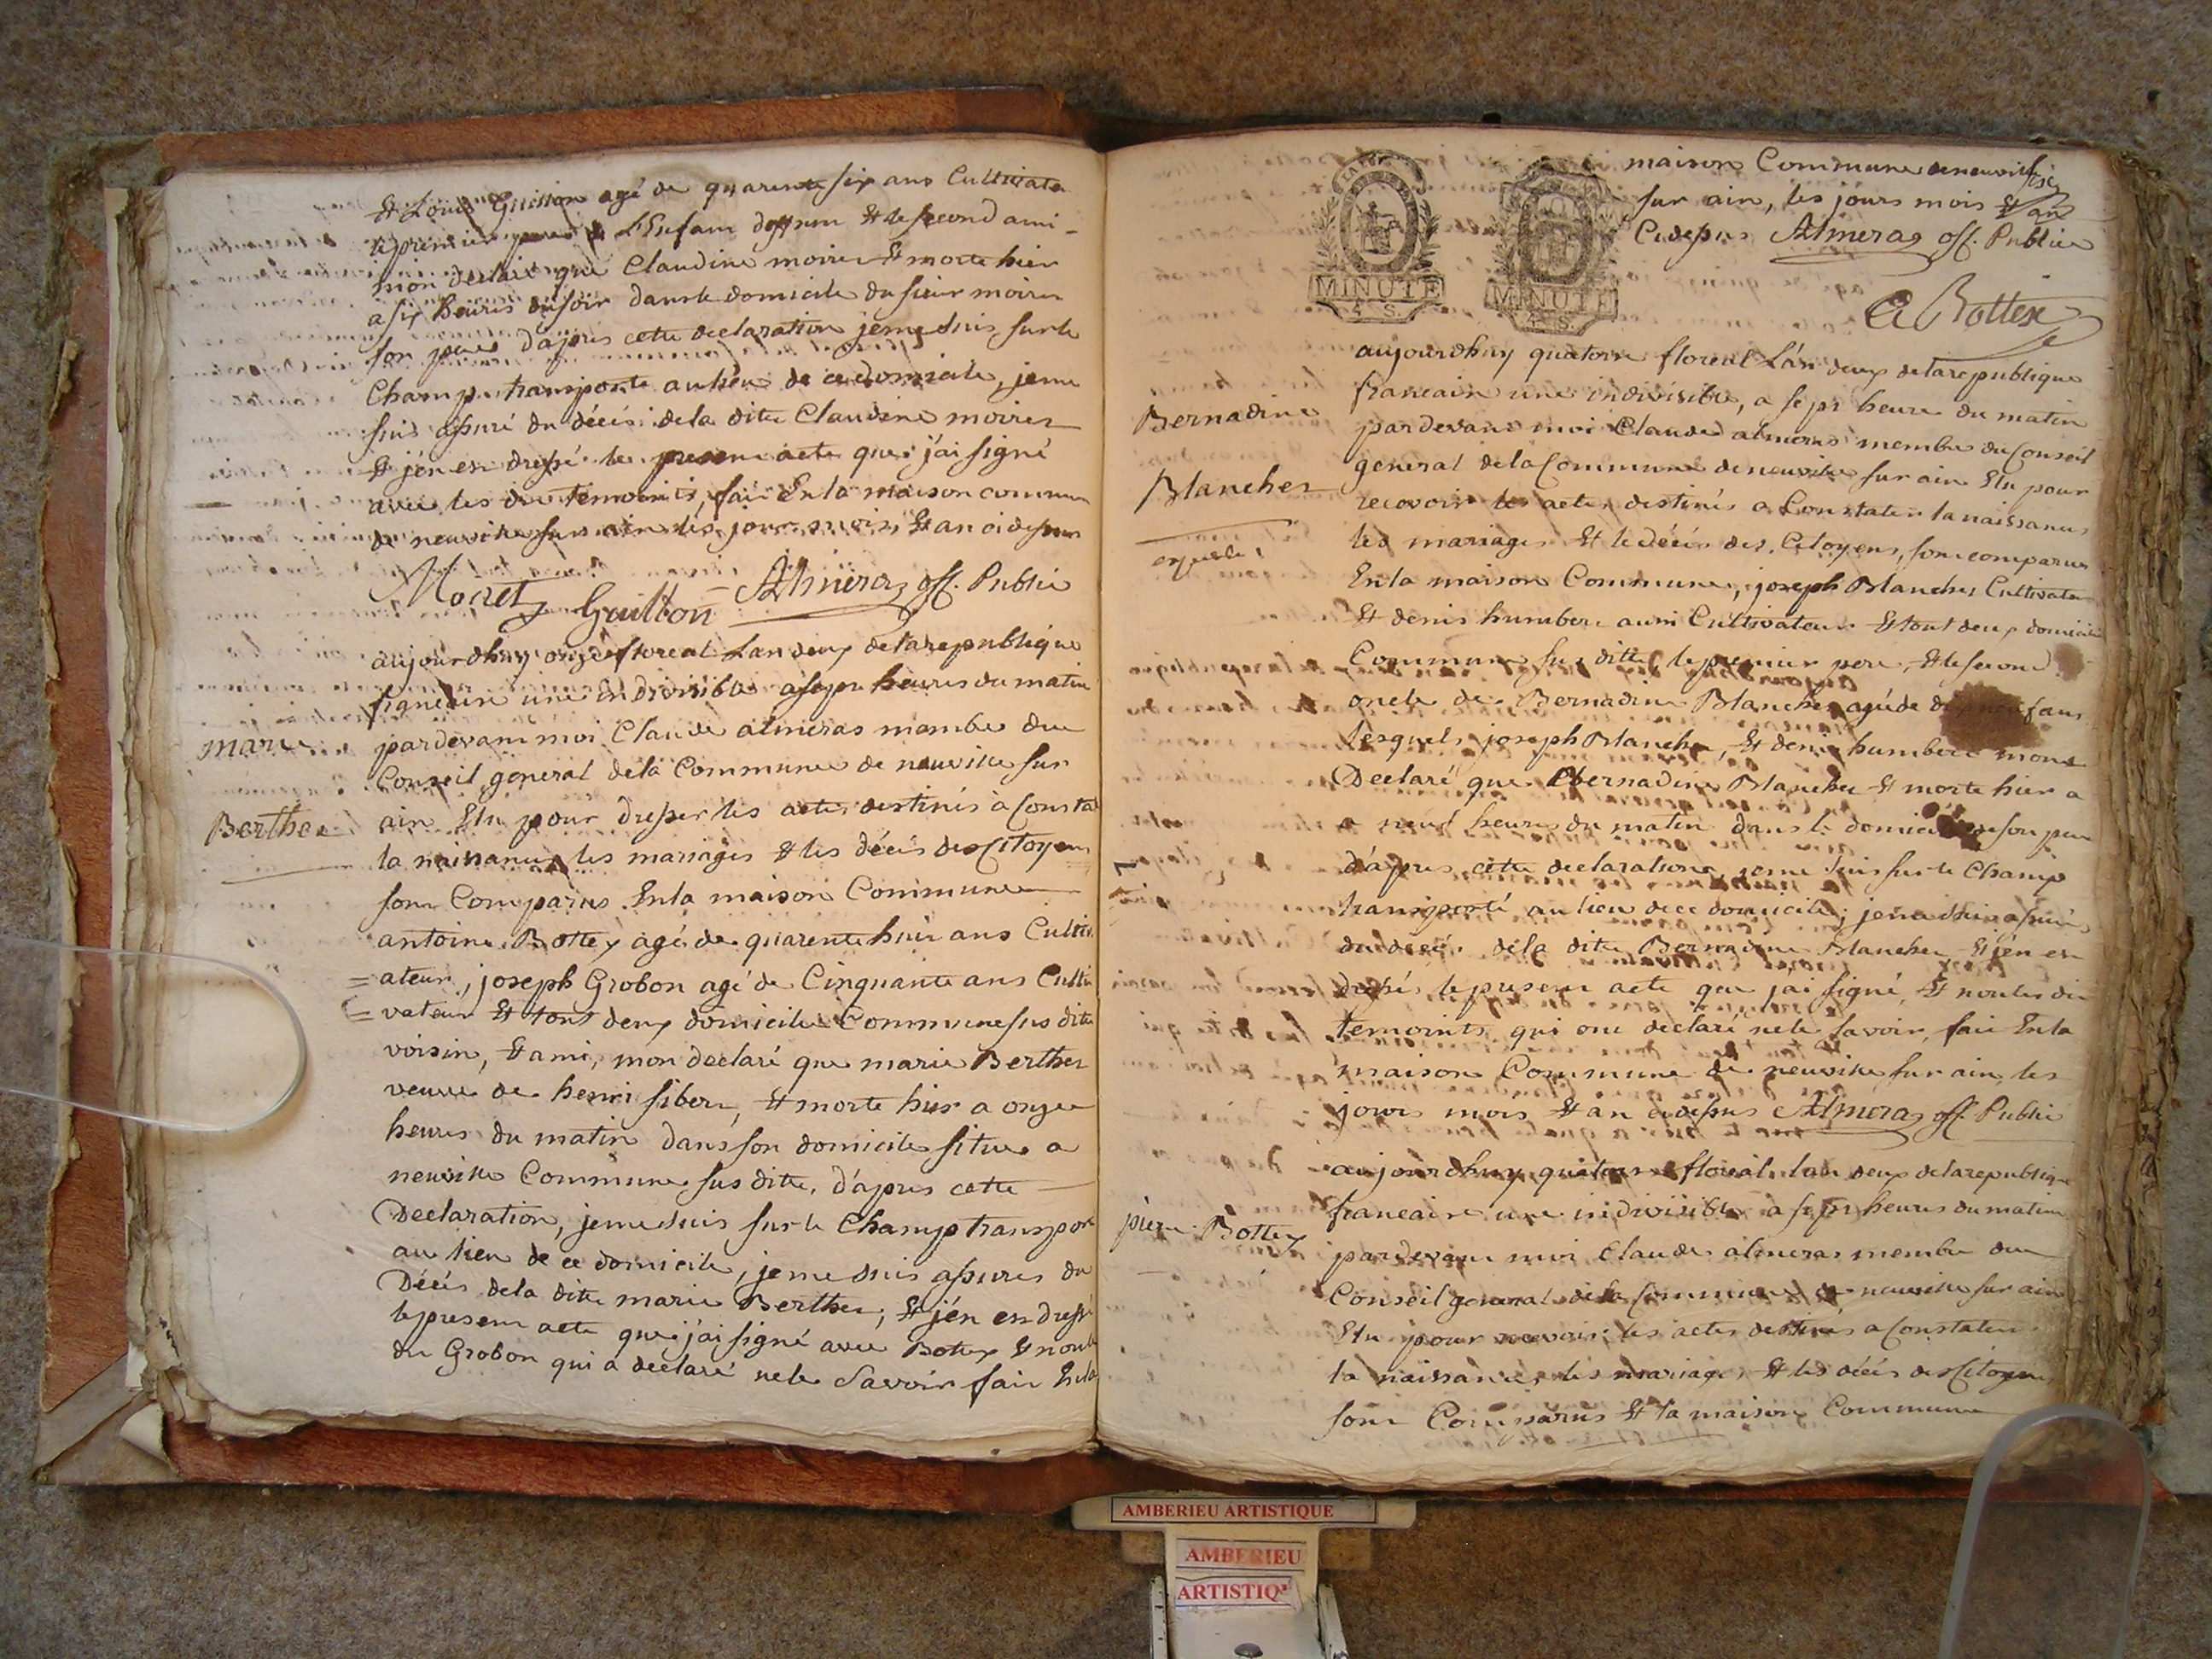 Et Louis Guilton agé de quarente six ans Cultivate
le premier pere de L'Enfant deffun Et le second ami
mon declaré que Claudine moirer Et morte hier
a six heures du soir dans le domicile du sieur moirer
son pere d'apres cette declaration je me suis sur le
Champ transporté au lieu de ce domicile, je me
suis assuré du décés de la dite Claudine moirer
Et j'en en dressé le present acte que j'ai signé
avec les dits temoints, fait En la maison commun
de neuville sur ain les jour mois Et an ci dessus
Monet Guilton Almeras off. Public
marie
Berther
aujourdhuy onze floreal L'an deux de la republique
une Indivisible a sept heures du matin
pardevant moi Claude almeras membre du
Conseil general de la Commune de neuville sur
ain Elu pour dresser les actes destinés à Consta
la naissance les mariages Et les décés des Citoyens
sont Comparus En la maison Commune
antoine Bottex agé de quarente huit ans Cultiv
= ateur, joseph Grobon agé de Cinquante ans Culti
= vateur Et tout deux domicilie Commune sus dite
voisin, Et ami, mon declaré que marie Berther
veuve de henri sibert, Et morte hier a onze
heures du matin dans son domicile situé a
neuville Commune sus dite, d'apres cette
Declaration, je me suis sur le Champ transporté
au lieu de ce domicile, je me suis assures du
Décés de la dite marie Berther, Et j'en en dressé
le present acte que j'ai signé avec Botex Et non le
dit Grobon qui a declaré ne le Savoir fait En la
maison Commune de neuville
sur ain, les jours mois Et an
Cidessus Almeras off. Public
MINUTE
4 S.
MINUTE
4 S.
A Bottex
Bernadine
Blancher
aujourdhuy quatorze floreal L'an deux de la republique
francaise une indivisible, a sept heure du matin
pardevant moi Claude almeras membre du Conseil
general de la Commune de neuville sur ain Elu pour
recevoir les actes destinés a Constater la naissances
les mariages Et le décés des Citoyens, sont comparus
En la maison Commune, joseph Blancher Cultivate
Et denis humbert aussi Cultivateur Et tout deux domicilié
Commune sus dite, le premier pere, Et le second
oncle de Bernadine Blancher agée de ans
lesquels joseph Blancher Et denis humbert mont
Declaré que Bernadine Blancher Et morte hier a
a neuf heures du matin dans le domicile de son pere
d'apres cette declaration, je me suis sur le Champ
transporté au lieu de ce domicile, je me suis assuré
du décés de la dite Bernadine Blancher Et j'en en
dressé le present acte que j'ai signé, Et non les dit
temoints qui ont declaré ne le savoir, fait En la
maison Commune de neuville sur ain, les
jours mois Et an cidessus Almeras off. Public
piere Bottex
aujourdhuy quatorze floreal l'an deux de la republique
francaise une indivisible a sept heures du matin
pardevant moi Claude almeras membre du
Conseil general de la Commune de neuville sur ain
Elu pour recevoir les actes destinés a Constater
la naissance, les mariages, Et les décés des Citoyens
sont Comparus Et la maison Commune
AMBERIEU ARTISTIQUE
AMBERIEU
ARTISTIQ